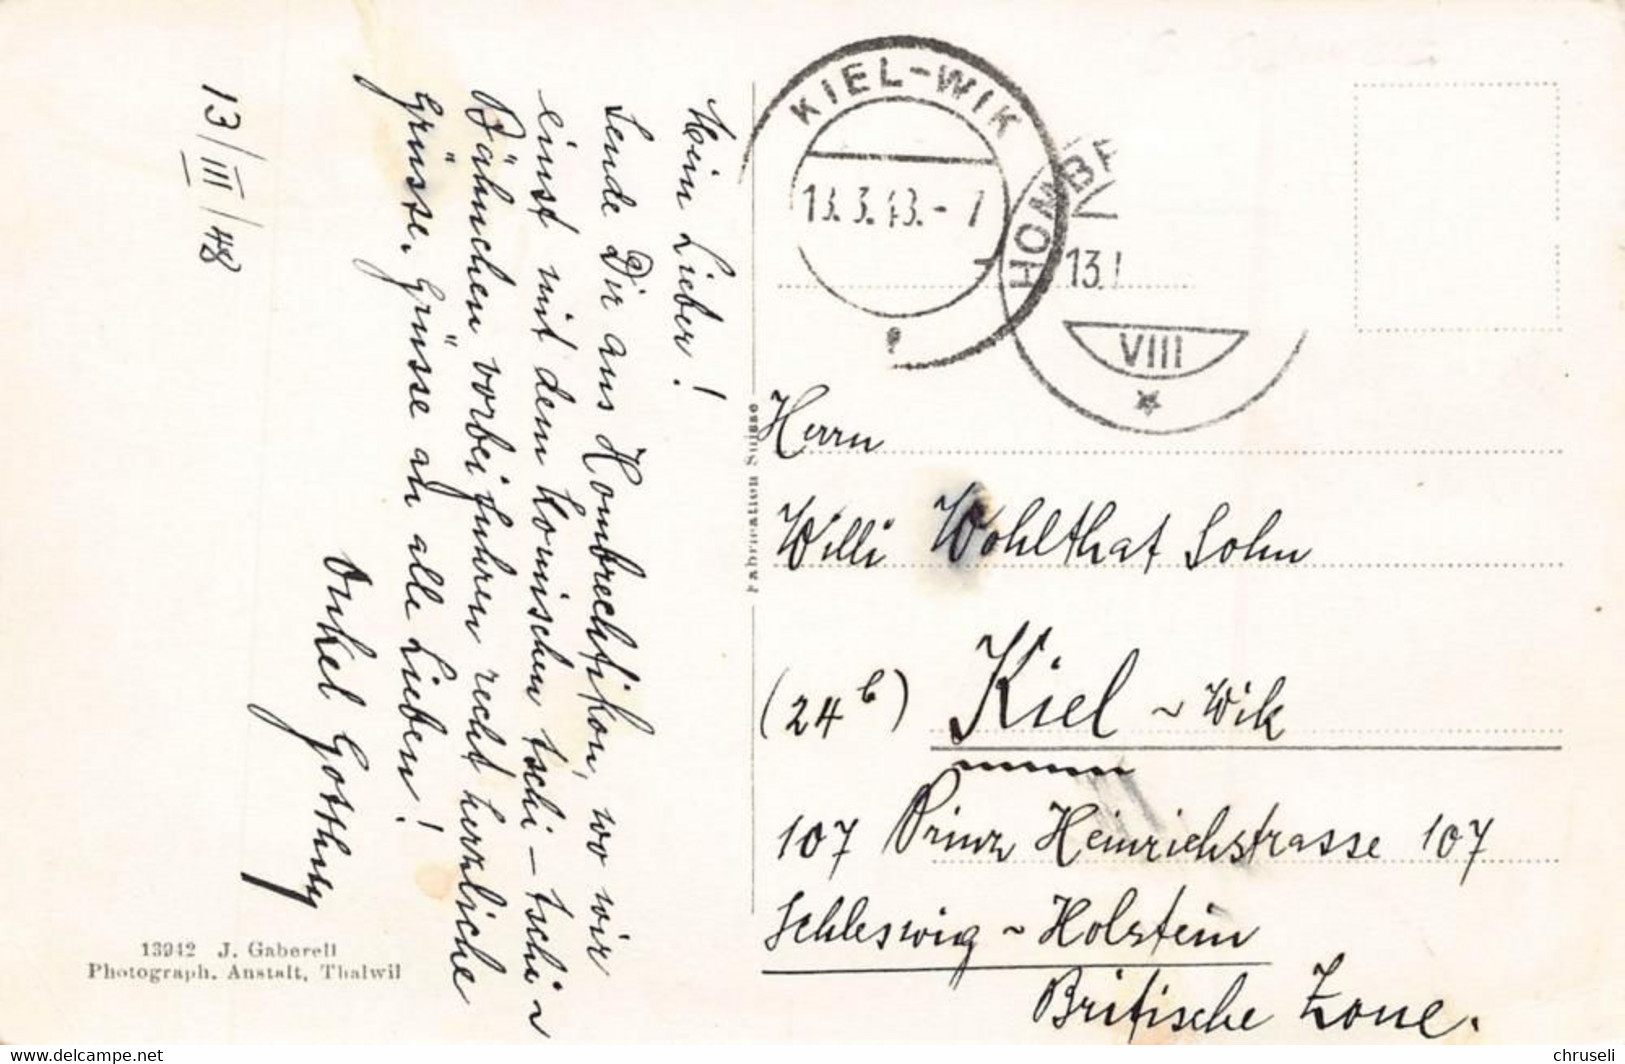 13/III/48
Mein Lieber!
Sende Dir aus Hombrechtikon, wo wir
einst mit dem komischen tschi-tschi~
Bähnchen vorbei fuhren recht herzliche
Grüsse. Grüsse an alle Lieben!
Onkel
13942 J. Gaberell
Photograph. Anstalt, Thalwil
Fabrication Suisse
KIEL-WIK
HOMBR
13.
VIII
Herrn
Willi Wohlthat Sohn
(24b) Kiel ~ Wik
107 Prinz Heinrichstrasse 107
Schleswig ~ Holstein
Britische Zone.
chruseli